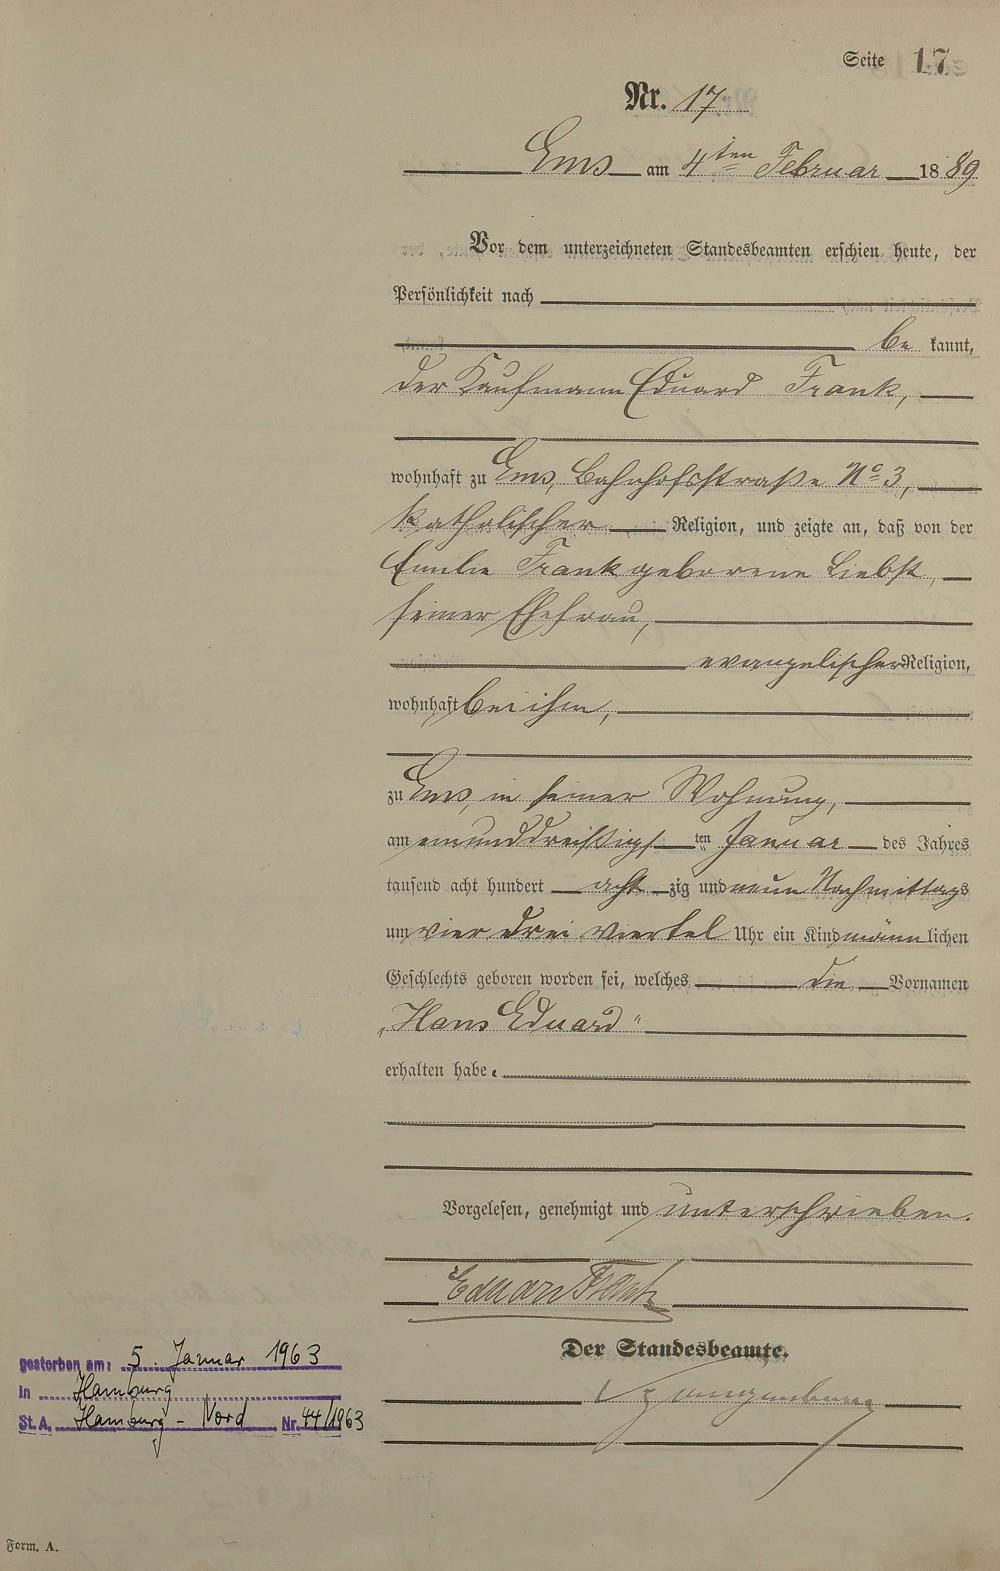 Seite 17
Nr. 17
Ems am 4ten Februar 1889
Vor dem unterzeichneten Standesbeamten erschien heute, der
Persönlichkeit nach
be kannt,
der Kaufmann Eduard Frank,
wohnhaft zu Ems, Bahnhofsstraße No 3,
katholischer Religion, und zeigte an, daß von der
Emilie Frank geborene Liebst,
seiner Ehefrau,
evangelischer Religion,
wohnhaft bei ihm,
zu Ems, in seiner Wohnung,
am einunddreißigsten Januar des Jahres
tausend acht hundert acht zig und neun Nachmittags
um vier drei viertel Uhr ein Kind männlichen
Geschlechts geboren worden sei, welches die Vornamen
„Hans Eduard"
erhalten habe.
Vorgelesen, genehmigt und unterschrieben.
Eduard Frank
Der Standesbeamte.
gestorben am: 5. Januar 1963
in Hamburg
St. A. Hamburg - Nord Nr. 44/1963
Form. A.